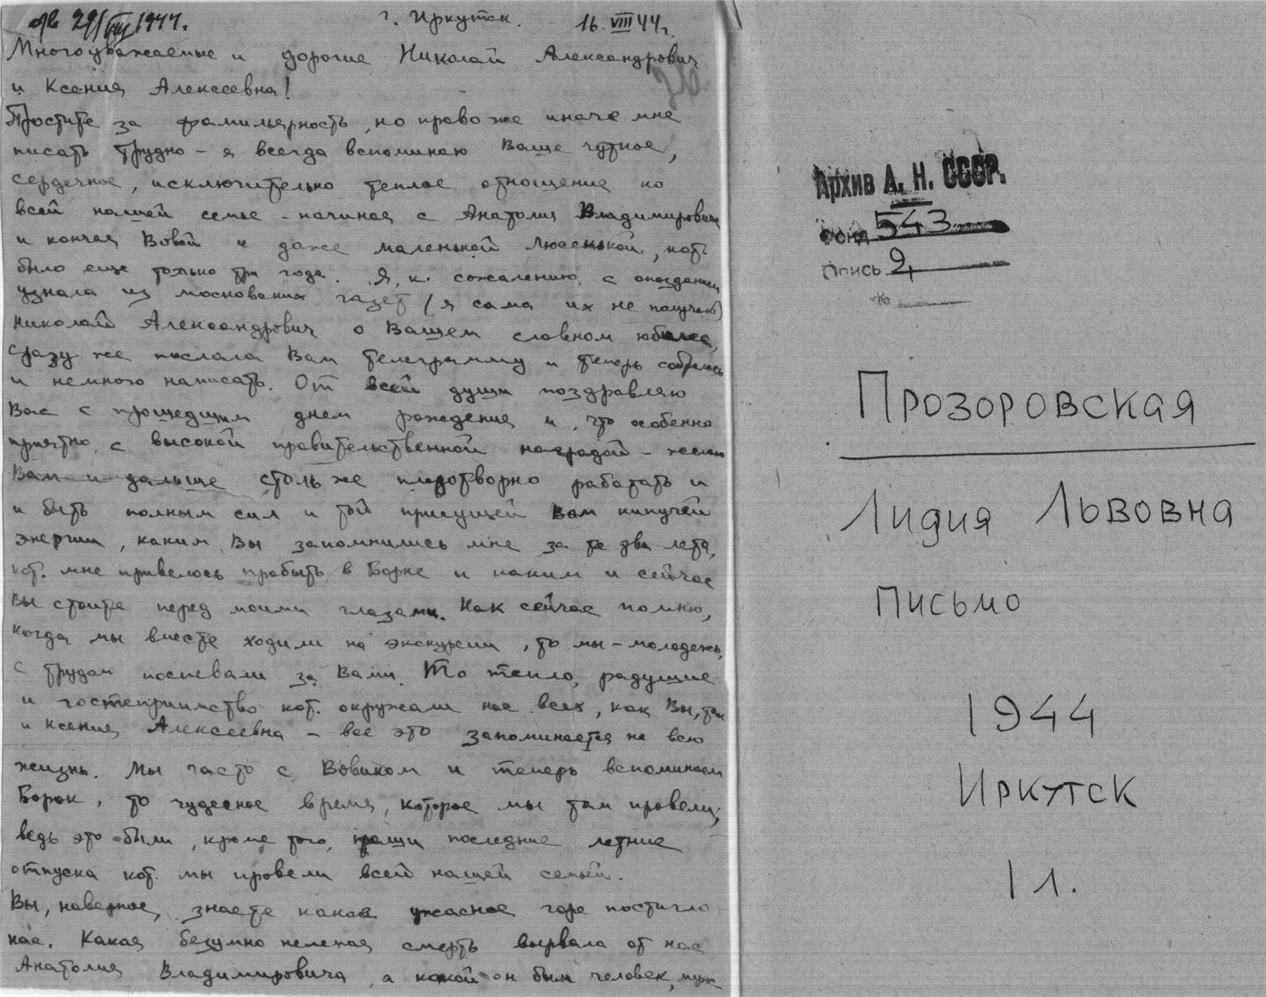 отв 29/VIII 1944.
г. Иркутск. 16 VIII 44 г.
Многоуважаемые и дорогие Николай Александрович
и Ксения Алексеевна!
Простите за фамильярность, но право же иначе мне
писать трудно – я всегда вспоминаю Ваше чуткое,
сердечное, исключительно теплое отношение ко
всей нашей семье – начиная с Анатолия Владимировича
и кончая Вовой и даже маленькой Люсенькой, кот.
было еще только три года. Я, к. сожалению, с опозданием
узнала из московских газет (я сама их не получаю)
Николай Александрович о Вашем славном юбилее,
сразу же послала Вам телеграмму и теперь собралась
и немного написать. От всей души поздравляю
Вас с прошедшим днем рождения и, что особенно
приятно, с высокой правительственной наградой – желаю
Вам и дальше столь же плодотворно работать и
и быть полным сил и той присущей Вам кипучей
энергии, каким Вы запомнились мне за те два лета,
кот. мне привелось пробыть в Борке и каким и сейчас
Вы стоите перед моими глазами. Как сейчас помню,
когда мы вместе ходили на экскурсии, то мы – молодежь,
с трудом поспевали за Вами. То тепло, радушие
и гостеприимство кот. окружали нас всех, как Вы, так
и Ксения Алексеевна – все это запоминается на всю
жизнь. Мы часто с Вовиком и теперь вспоминаем
Борок, то чудесное время, которое мы там провели,
ведь это были, кроме того, наши последние летние
отпуска кот. мы провели всей нашей семьей.
Вы, наверное, знаете какое ужасное горе постигло
нас. Какая безумно нелепая смерть вырвала от нас
Анатолия Владимировича, а какой он был человек, муж
Архив А. Н. СССР.
Фонд 543
Опись 2
№
Прозоровская
Лидия Львовна
Письмо
1944
Иркутск
1 л.